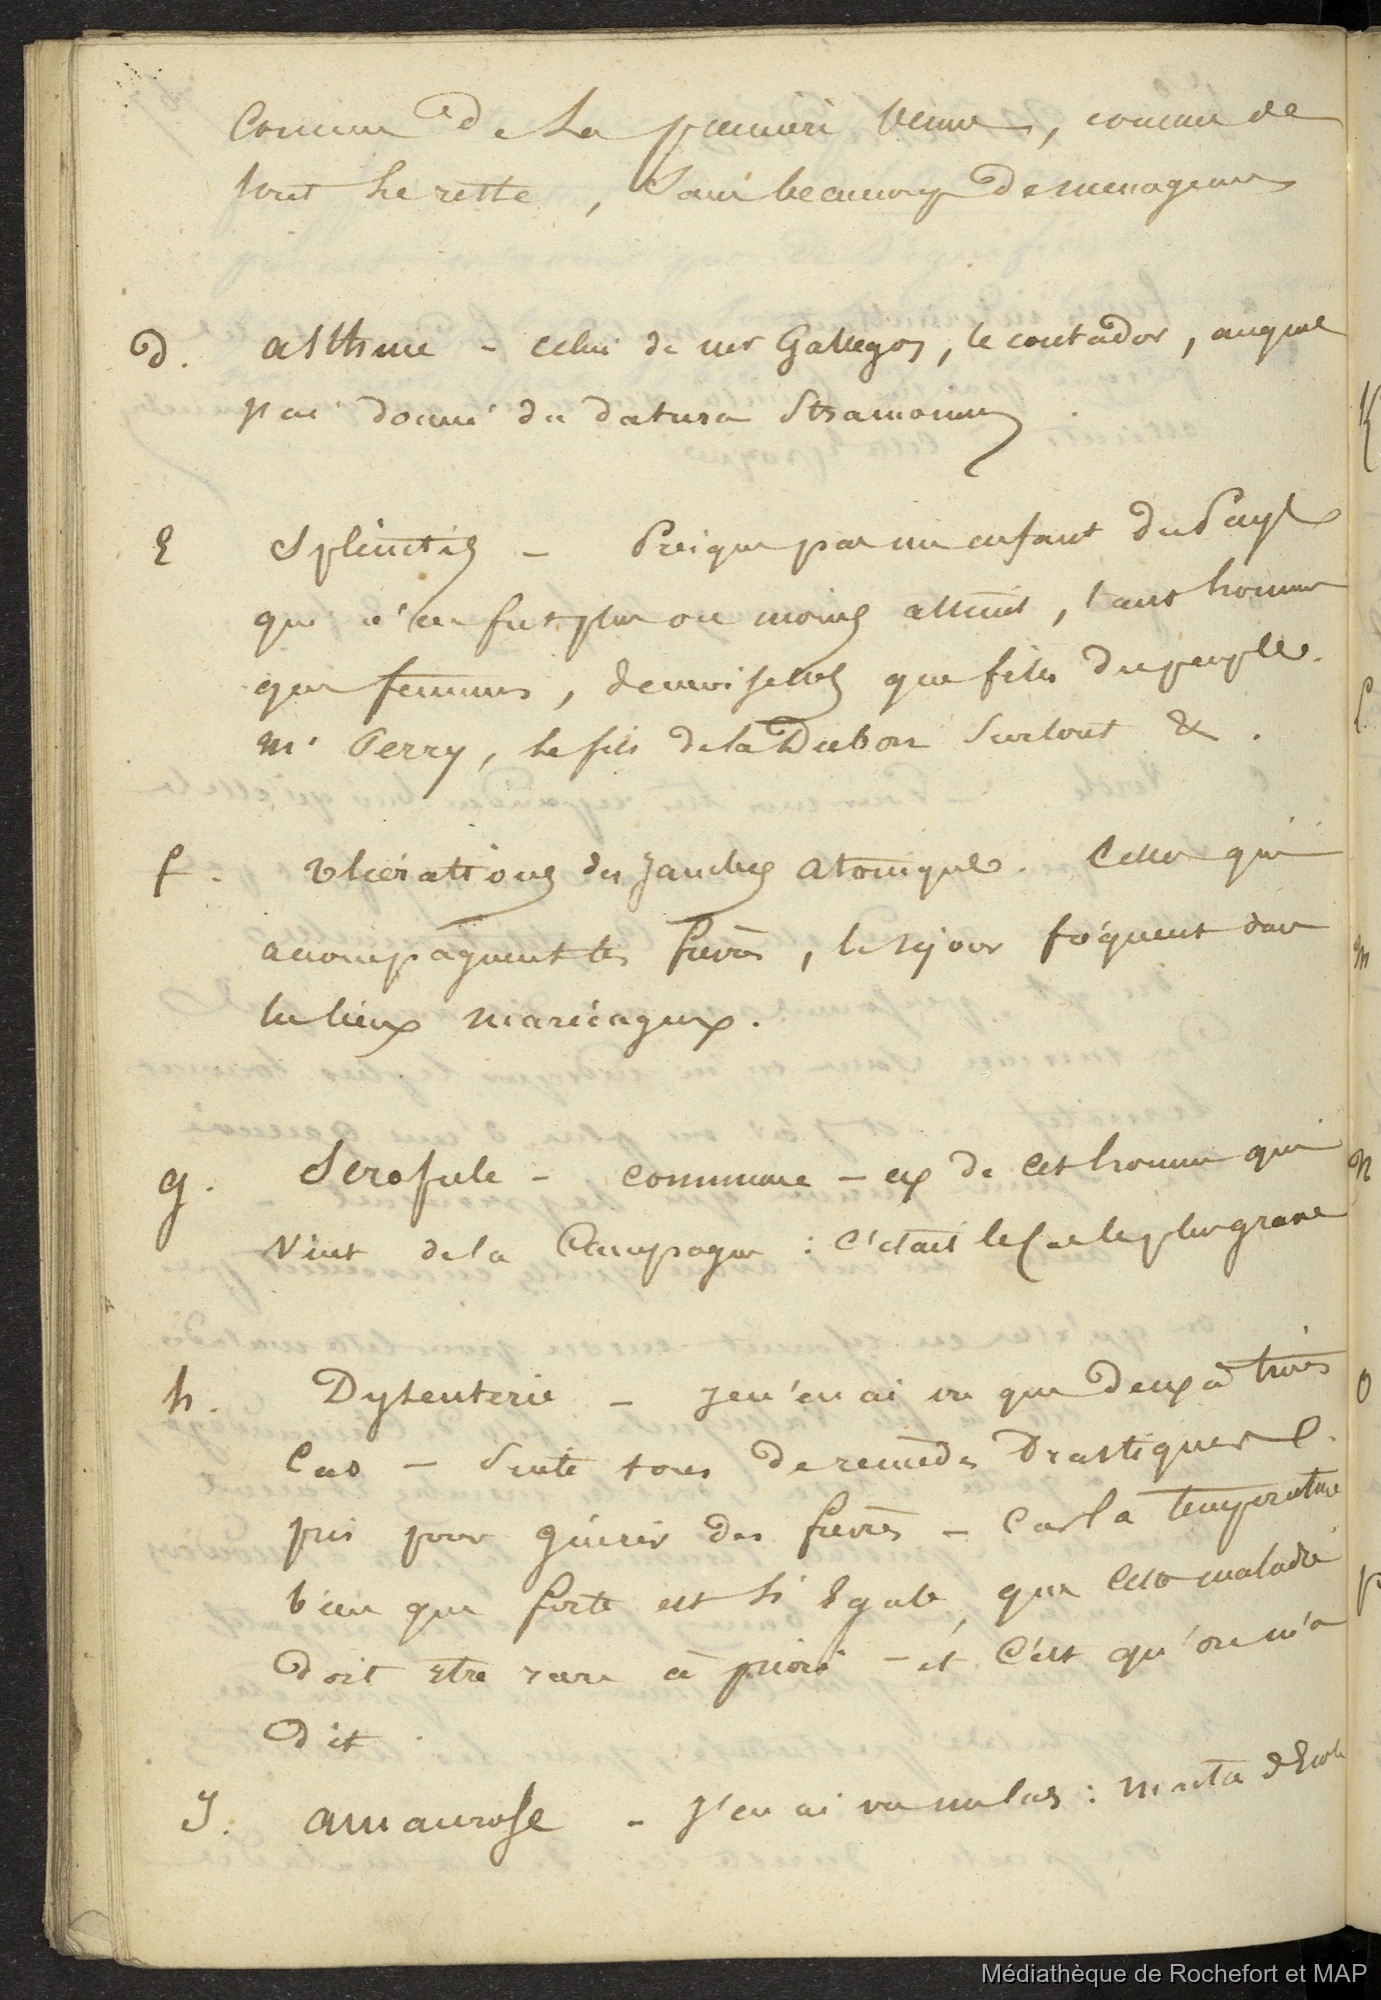 comme de la premiere venue, comme de
tout le reste, sans beaucoup de menagemens
d. asthme - celui de mr Gallegos, le contador, auquel
j'ai donné du datura Stramonium.
E Splénites - Presque pas un enfant du Pays
qui n'en fut plus ou moins atteint, tant hommes
que femmes, demoiselles que filles du peuple.
Mr Perry, le fils de la Dubon surtout &.
f. Ulcérations des jambes atonique. Celles qui
acompagnent les fievres, le séjour fréquent dans
les lieux marécageux.
g. Scrofule - commune - ex de cet homme qui
vint de la Campagne : c'était le Cas le plus grave
h. Dysenterie - Je n'en ai vu que deux à trois
Cas - Suite de remèdes Drastiques
pris pour guérir des fievres - Car la température
bien que forte est si Egale, que cette maladie
doit etre rare à priori - et C'est qu'on m'a
dit.
J. amaurose - J'en ai vu un Cas :
Médiathèque de Rochefort et MAP